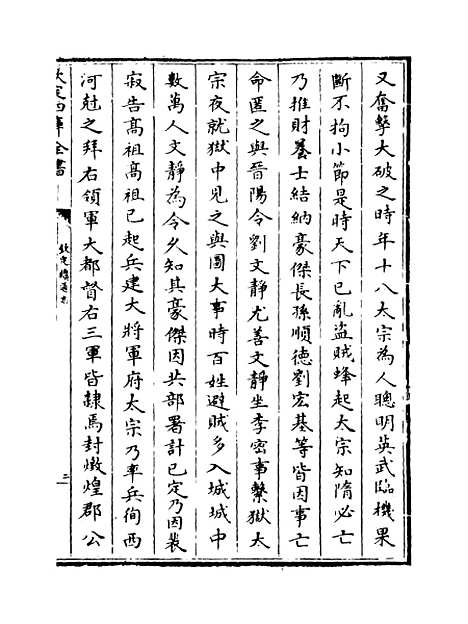 又奮擊大破之時年十八太宗為人聰明英武臨機果
斷不拘小節是時天下已亂盜賊蜂起太宗知隋必亡
乃推財養士結納豪傑長孫順德劉宏基等皆因事亡
命匿之與晉陽令劉文靜尤善文靜坐李密事繫獄太
宗夜就獄中見之與圖大事時百姓避賊多入城城中
數萬人文靜為令久知其豪傑因共部署計已定乃因裴
寂告髙祖髙祖已起兵建大將軍府太宗乃率兵徇西
河尅之拜右領軍大都督右三軍皆隸焉封燉煌郡公
欽定四庫全書
欽定續通志
二